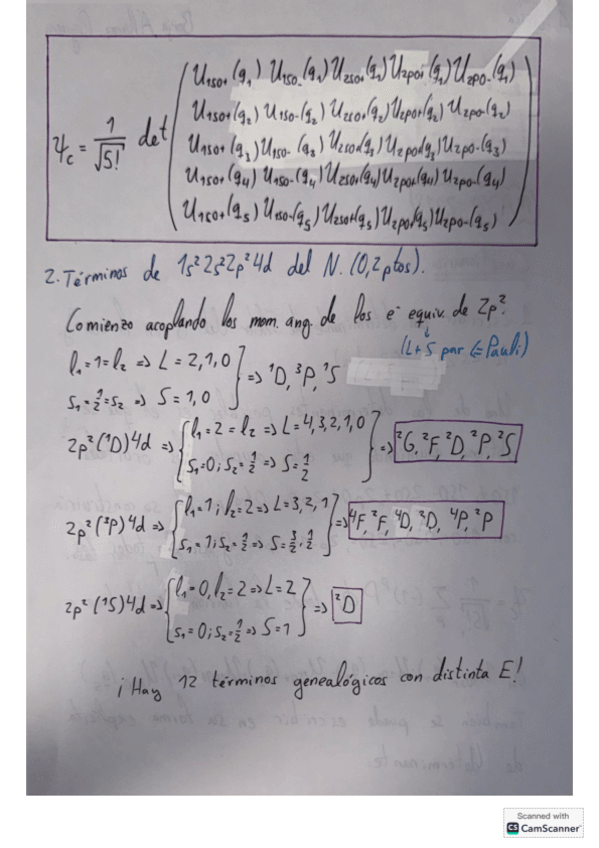 ψc = 1/√5! det ( U1s0+(q1) U1s0-(q1) U2s0+(q1) U2p0+(q1) U2p0-(q1)
U1s0+(q2) U1s0-(q2) U2s0+(q2) U2p0+(q2) U2p0-(q2)
U1s0+(q3) U1s0-(q3) U2s0+(q3) U2p0+(q3) U2p0-(q3)
U1s0+(q4) U1s0-(q4) U2s0+(q4) U2p0+(q4) U2p0-(q4)
U1s0+(q5) U1s0-(q5) U2s0+(q5) U2p0+(q5) U2p0-(q5) )
2. Términos de 1s²2s²2p²4d del N. (0,2 ptos).
Comienzo acoplando los mom. ang. de los e⁻ equiv. de 2p².
(L+S par ⇐ Pauli)
l₁=1=l₂ => L=2,1,0
s₁=½=s₂ => S=1,0 } => ¹D, ³P, ¹S
2p²(¹D)4d => { l₁=2=l₂ => L=4,3,2,1,0
s₁=0; s₂=½ => S=½ } => ²G, ²F, ²D, ²P, ²S
2p²(³P)4d => { l₁=1; l₂=2 => L=3,2,1
s₁=1; s₂=½ => S=3/2, ½ } => ⁴F, ²F, ⁴D, ²D, ⁴P, ²P
2p²(¹S)4d => { l₁=0, l₂=2 => L=2
s₁=0; s₂=½ => S=1 } => ²D
¡Hay 12 términos genealógicos con distinta E!
Scanned with
CS CamScanner